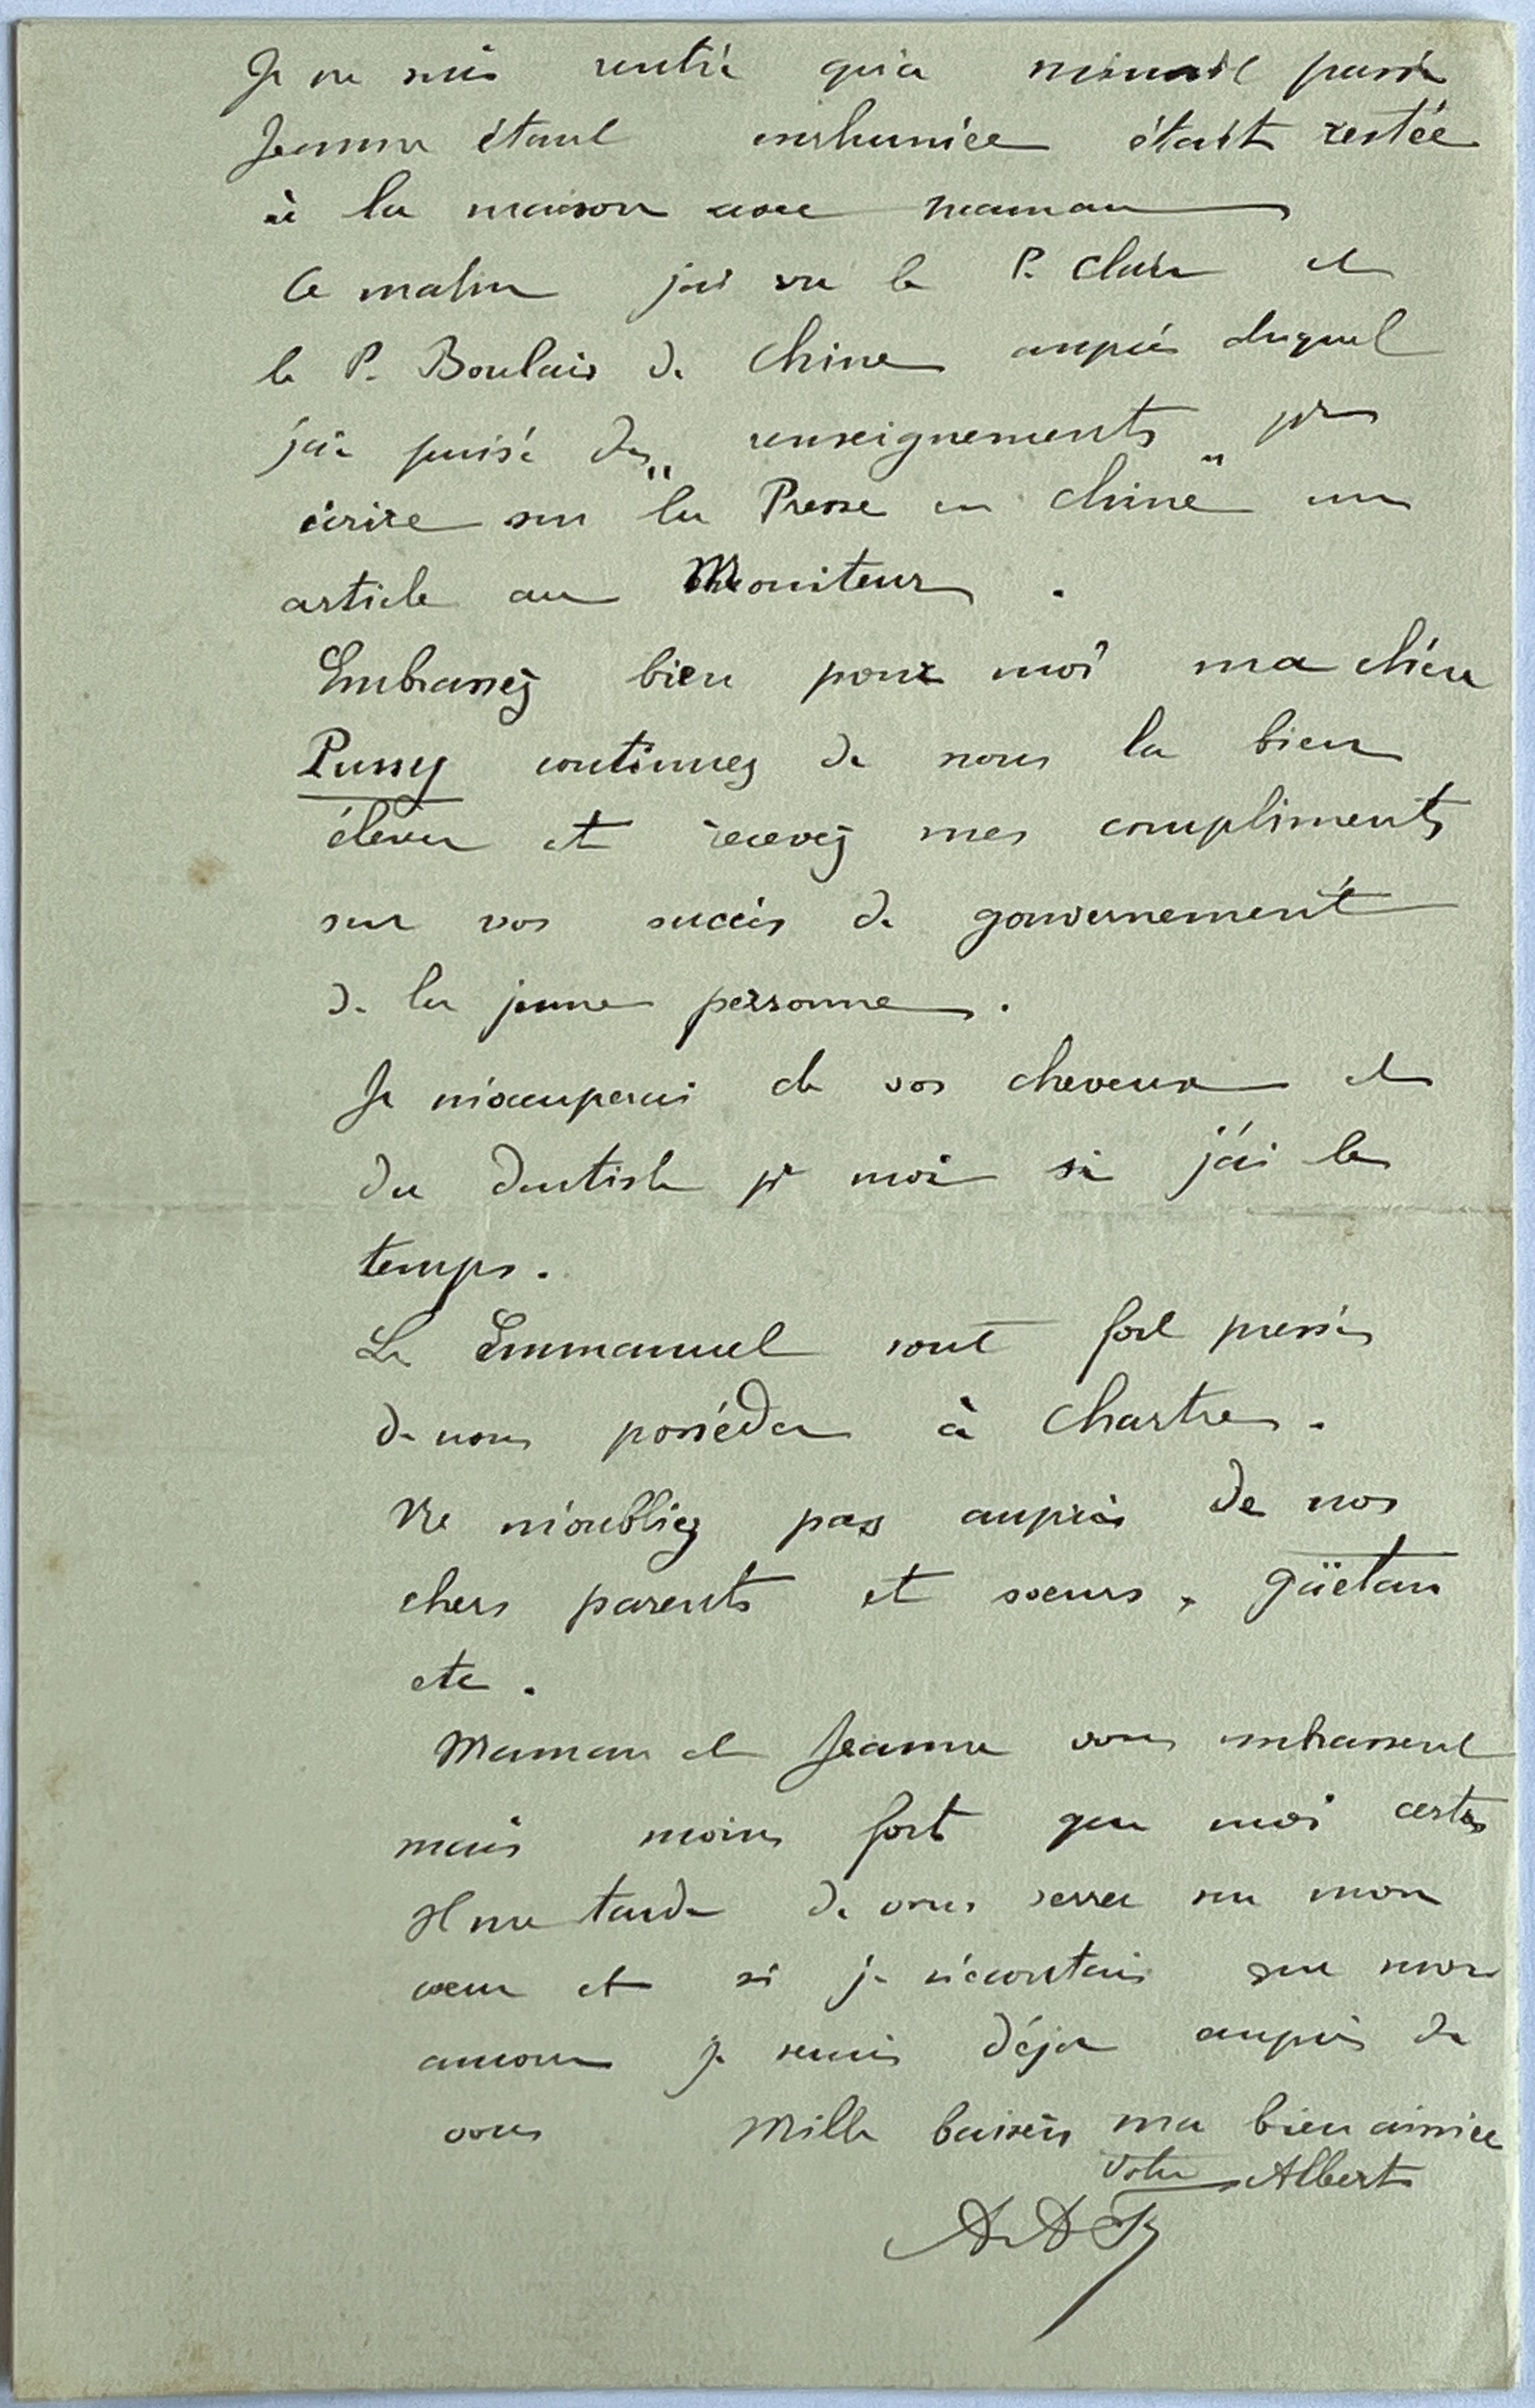 Je ne suis rentré qu'à minuit passé
Jeanne étant enrhumée était restée
à la maison avec maman
Ce matin j'ai vu le P. Clair et
le P. Boulais de Chine auprès duquel
j'ai puisé des renseignements pr
écrire sur "la Presse en Chine" un
article au Moniteur.
Embrassez bien pour moi ma chère
Pussy continuez de nous la bien
élever et recevez mes compliments
sur vos succès de gouvernement
de la jeune personne.
Je m'occuperai de vos cheveux et
du dentiste pr moi si j'ai le
temps.
Les Emmanuel sont fort pressés
de nous posséder à Chartres.
Ne m'oubliez pas auprès de nos
chers parents et soeurs, Gaëtan
etc.
Maman et Jeanne vous embrassent
mais moins fort que moi certes
Il me tarde de vous serrer sur mon
coeur et si je m'écoutais sur mon
amour je serais déjà auprès de
vous Mille baisers ma bien aimée
Votre Albert